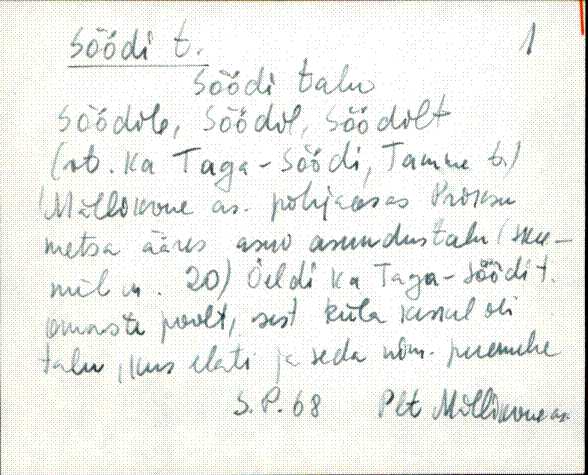 Söödi t. 1
Söödi talu
Söödile, Söödil, Söödilt
(vt. ka Taga-Söödi, Tamme t.)
Mällikvere as. põhjaosas
metsa ääres asuv asundustalu
20) Öeldi ka Taga-Söödi t.
omaste poolt, sest küla keskel oli
talu, kus elati ja seda nim.
S.P.68 Plt Mällikvere as.